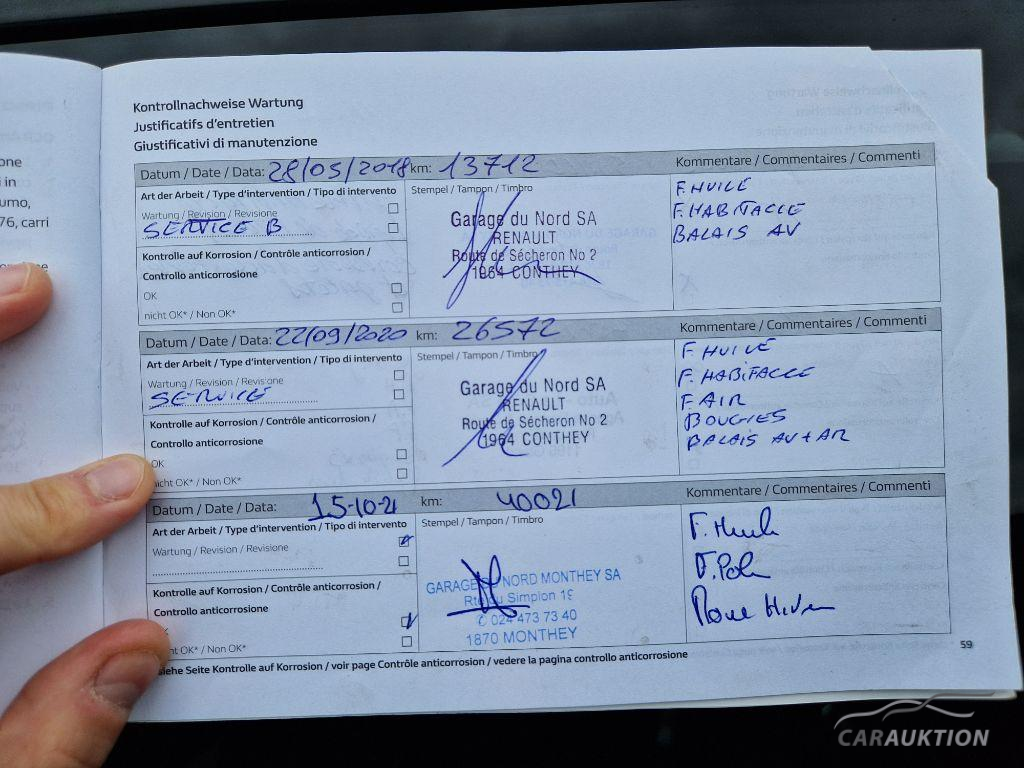 one
i in
umo,
76, carri
Kontrollnachweise Wartung
Justificatifs d'entretien
Giustificativi di manutenzione
Datum / Date / Data: 28/05/2018 km: 13712
Kommentare / Commentaires / Commenti
Art der Arbeit / Type d'intervention / Tipo di intervento
Wartung / Revision / Revisione
SERVICE B
Kontrolle auf Korrosion / Contrôle anticorrosion /
Controllo anticorrosione
OK
nicht OK* / Non OK*
Stempel / Tampon / Timbro
Garage du Nord SA
RENAULT
Route de Sécheron No 2
1964 CONTHEY
F. HUILE
F. HABITACLE
BALAIS AV
Datum / Date / Data: 22/09/2020 km: 26572
Kommentare / Commentaires / Commenti
Art der Arbeit / Type d'intervention / Tipo di intervento
Wartung / Revision / Revisione
SERVICE
Kontrolle auf Korrosion / Contrôle anticorrosion /
Controllo anticorrosione
OK
nicht OK* / Non OK*
Stempel / Tampon / Timbro
Garage du Nord SA
RENAULT
Route de Sécheron No 2
1964 CONTHEY
F. HUILE
F. HABITACLE
F. AIR
BOUGIES
BALAIS AV + AR
Datum / Date / Data: 15-10-21 km: 40021
Kommentare / Commentaires / Commenti
Art der Arbeit / Type d'intervention / Tipo di intervento
Wartung / Revision / Revisione
Kontrolle auf Korrosion / Contrôle anticorrosion /
Controllo anticorrosione
OK* / Non OK*
Stempel / Tampon / Timbro
GARAGE DU NORD MONTHEY SA
Rte du Simplon 19
024 473 73 40
1870 MONTHEY
F. Huile
F. Pol
Roue Hiver
siehe Seite Kontrolle auf Korrosion / voir page Contrôle anticorrosion / vedere la pagina controllo anticorrosione
59
CARAUKTION